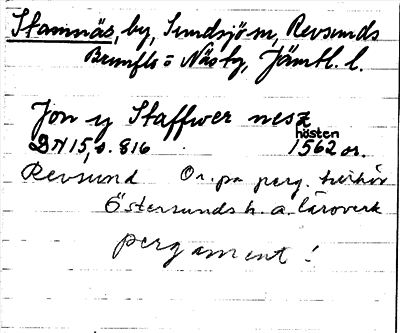 Stamnäs, by, Sundsjö sn, Revsunds
Brunflo o Näs tg, Jämtl. l.
Jon y Staffwer nesz
hösten
DN 15, s. 816 1562 or.
Revsund Or. på perg. tillhör
Östersunds h. a. läroverk
pergament!